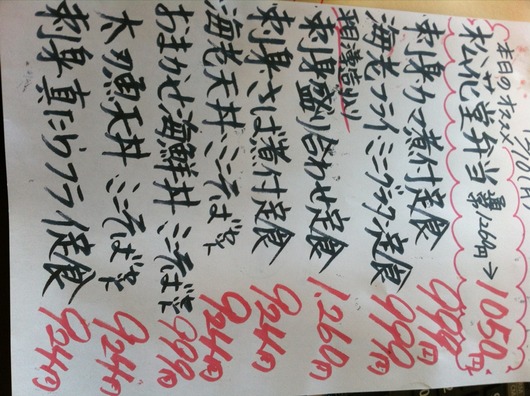 本日のオススメ
松花堂弁当 1,260円→1050円
刺身カマ煮付定食 999円
海老フライミニ定食 999円
刺身盛り合わせ定食 1,260円
刺身さば煮付定食 924円
海老天丼 ミニそば 924円
おまかせ海鮮丼 ミニそば 999円
太刀魚天丼 ミニそば 924円
刺身真だらフライ定食 924円